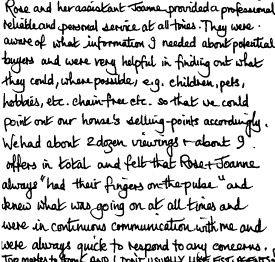 Rose and her assistant Joanne provided a professional
reliable and personal service at all times. They were
aware of what information I needed about potential
buyers and were very helpful in finding out what
they could, where possible, e.g. children, pets,
hobbies, etc. chain free etc. so that we could
point out our house's selling-points accordingly.
We had about 2 dozen viewings & about 9
offers in total and felt that Rose & Joanne
always "had their fingers on the pulse" and
knew what was going on at all times and
were in continuous communication with me and
were always quick to respond to any concerns.
Top marks to them AND I DON'T USUALLY LIKE EST. AGENTS!